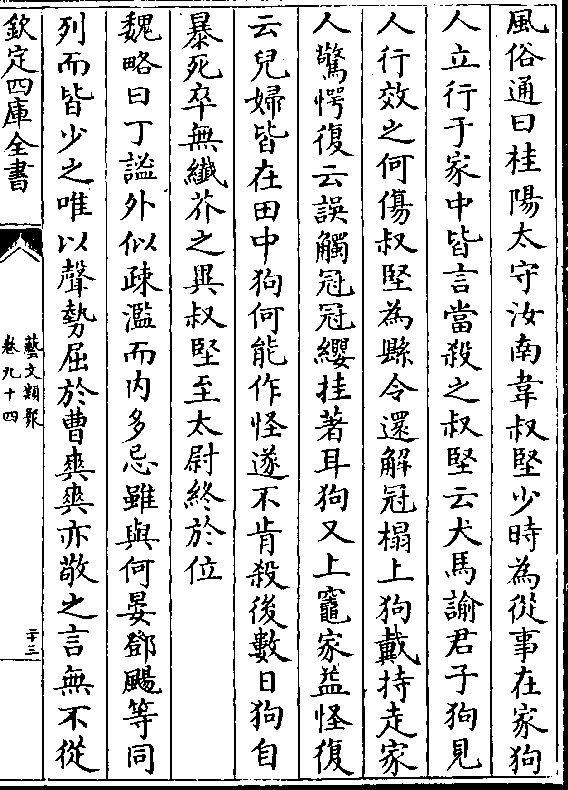 風俗通曰桂陽太守汝南韋叔堅少時為從事在家狗
人立行于家中皆言當殺之叔堅云犬馬諭君子狗見
人行效之何傷叔堅為縣令還解冠榻上狗戴持走家
人驚愕復云誤觸冠冠纓挂著耳狗又上竈家益怪復
云兒婦皆在田中狗何能作怪遂不肯殺後數日狗自
暴死卒無纖芥之異叔堅至太尉終於位
魏略曰丁謐外似疎濫而内多忌雖與何晏鄧颺等同
列而皆少之唯以聲勢屈於曹爽爽亦敬之言無不從
欽定四庫全書
藝文類聚
卷九十四
二十三